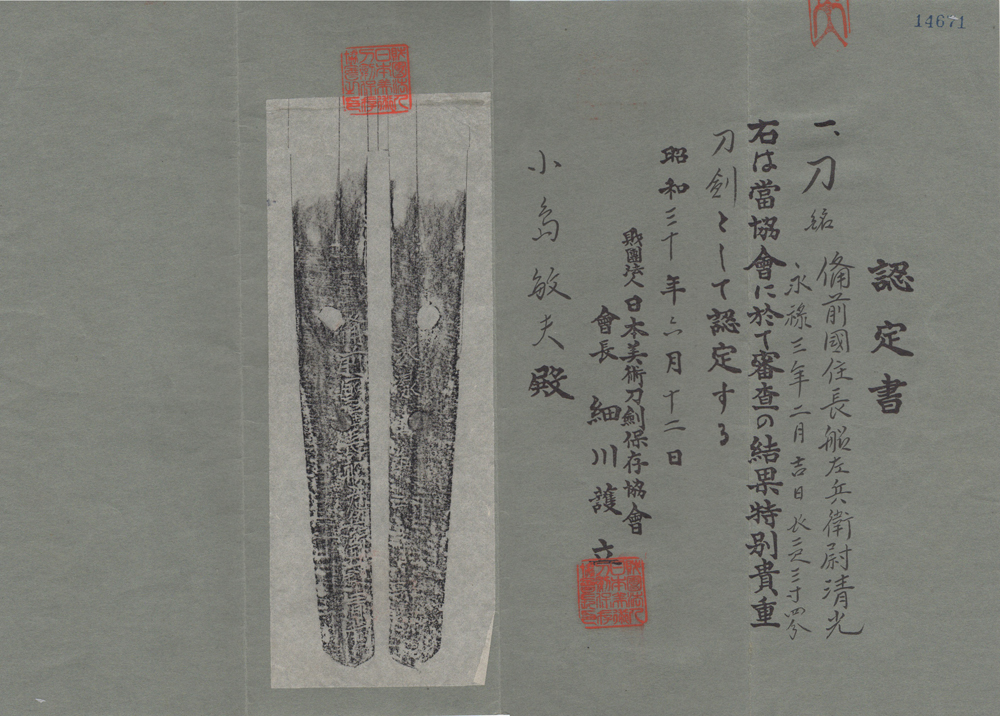 14671
認定書
一、刀 銘 備前國住長船左兵衛尉清光
、永祿三年二月吉日 長二尺三寸四分
右は當協會に於て審査の結果特別貴重
刀剣として認定する
昭和三十年六月十二日
財團法人日本美術刀劍保存協會
會長 細川護立
小島敏夫殿